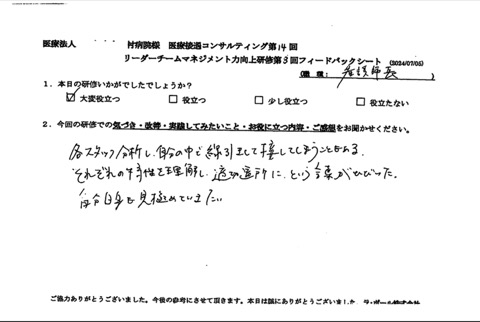 医療法人 村病院様 医療接遇コンサルティング第14回
リーダーチームマネジメント力向上研修第3回フィードバックシート (2024/07/05)
(職種: 看護師長)
1．本日の研修いかがでしたでしょうか？
☑ 大変役立つ □ 役立つ □ 少し役立つ □ 役立たない
2．今回の研修での気づき・改善・実践してみたいこと・お役に立つ内容・ご感想をお聞かせください。
各スタッフ分析し、自分の中で線引きして接してしまうこともある。
それぞれの特性を理解し、適切な所に、という言葉がひびいた。
自分自身も見極めていきたい
ご協力ありがとうございました。今後の参考にさせて頂きます。本日は誠にありがとうございました。ラ・ポール株式会社